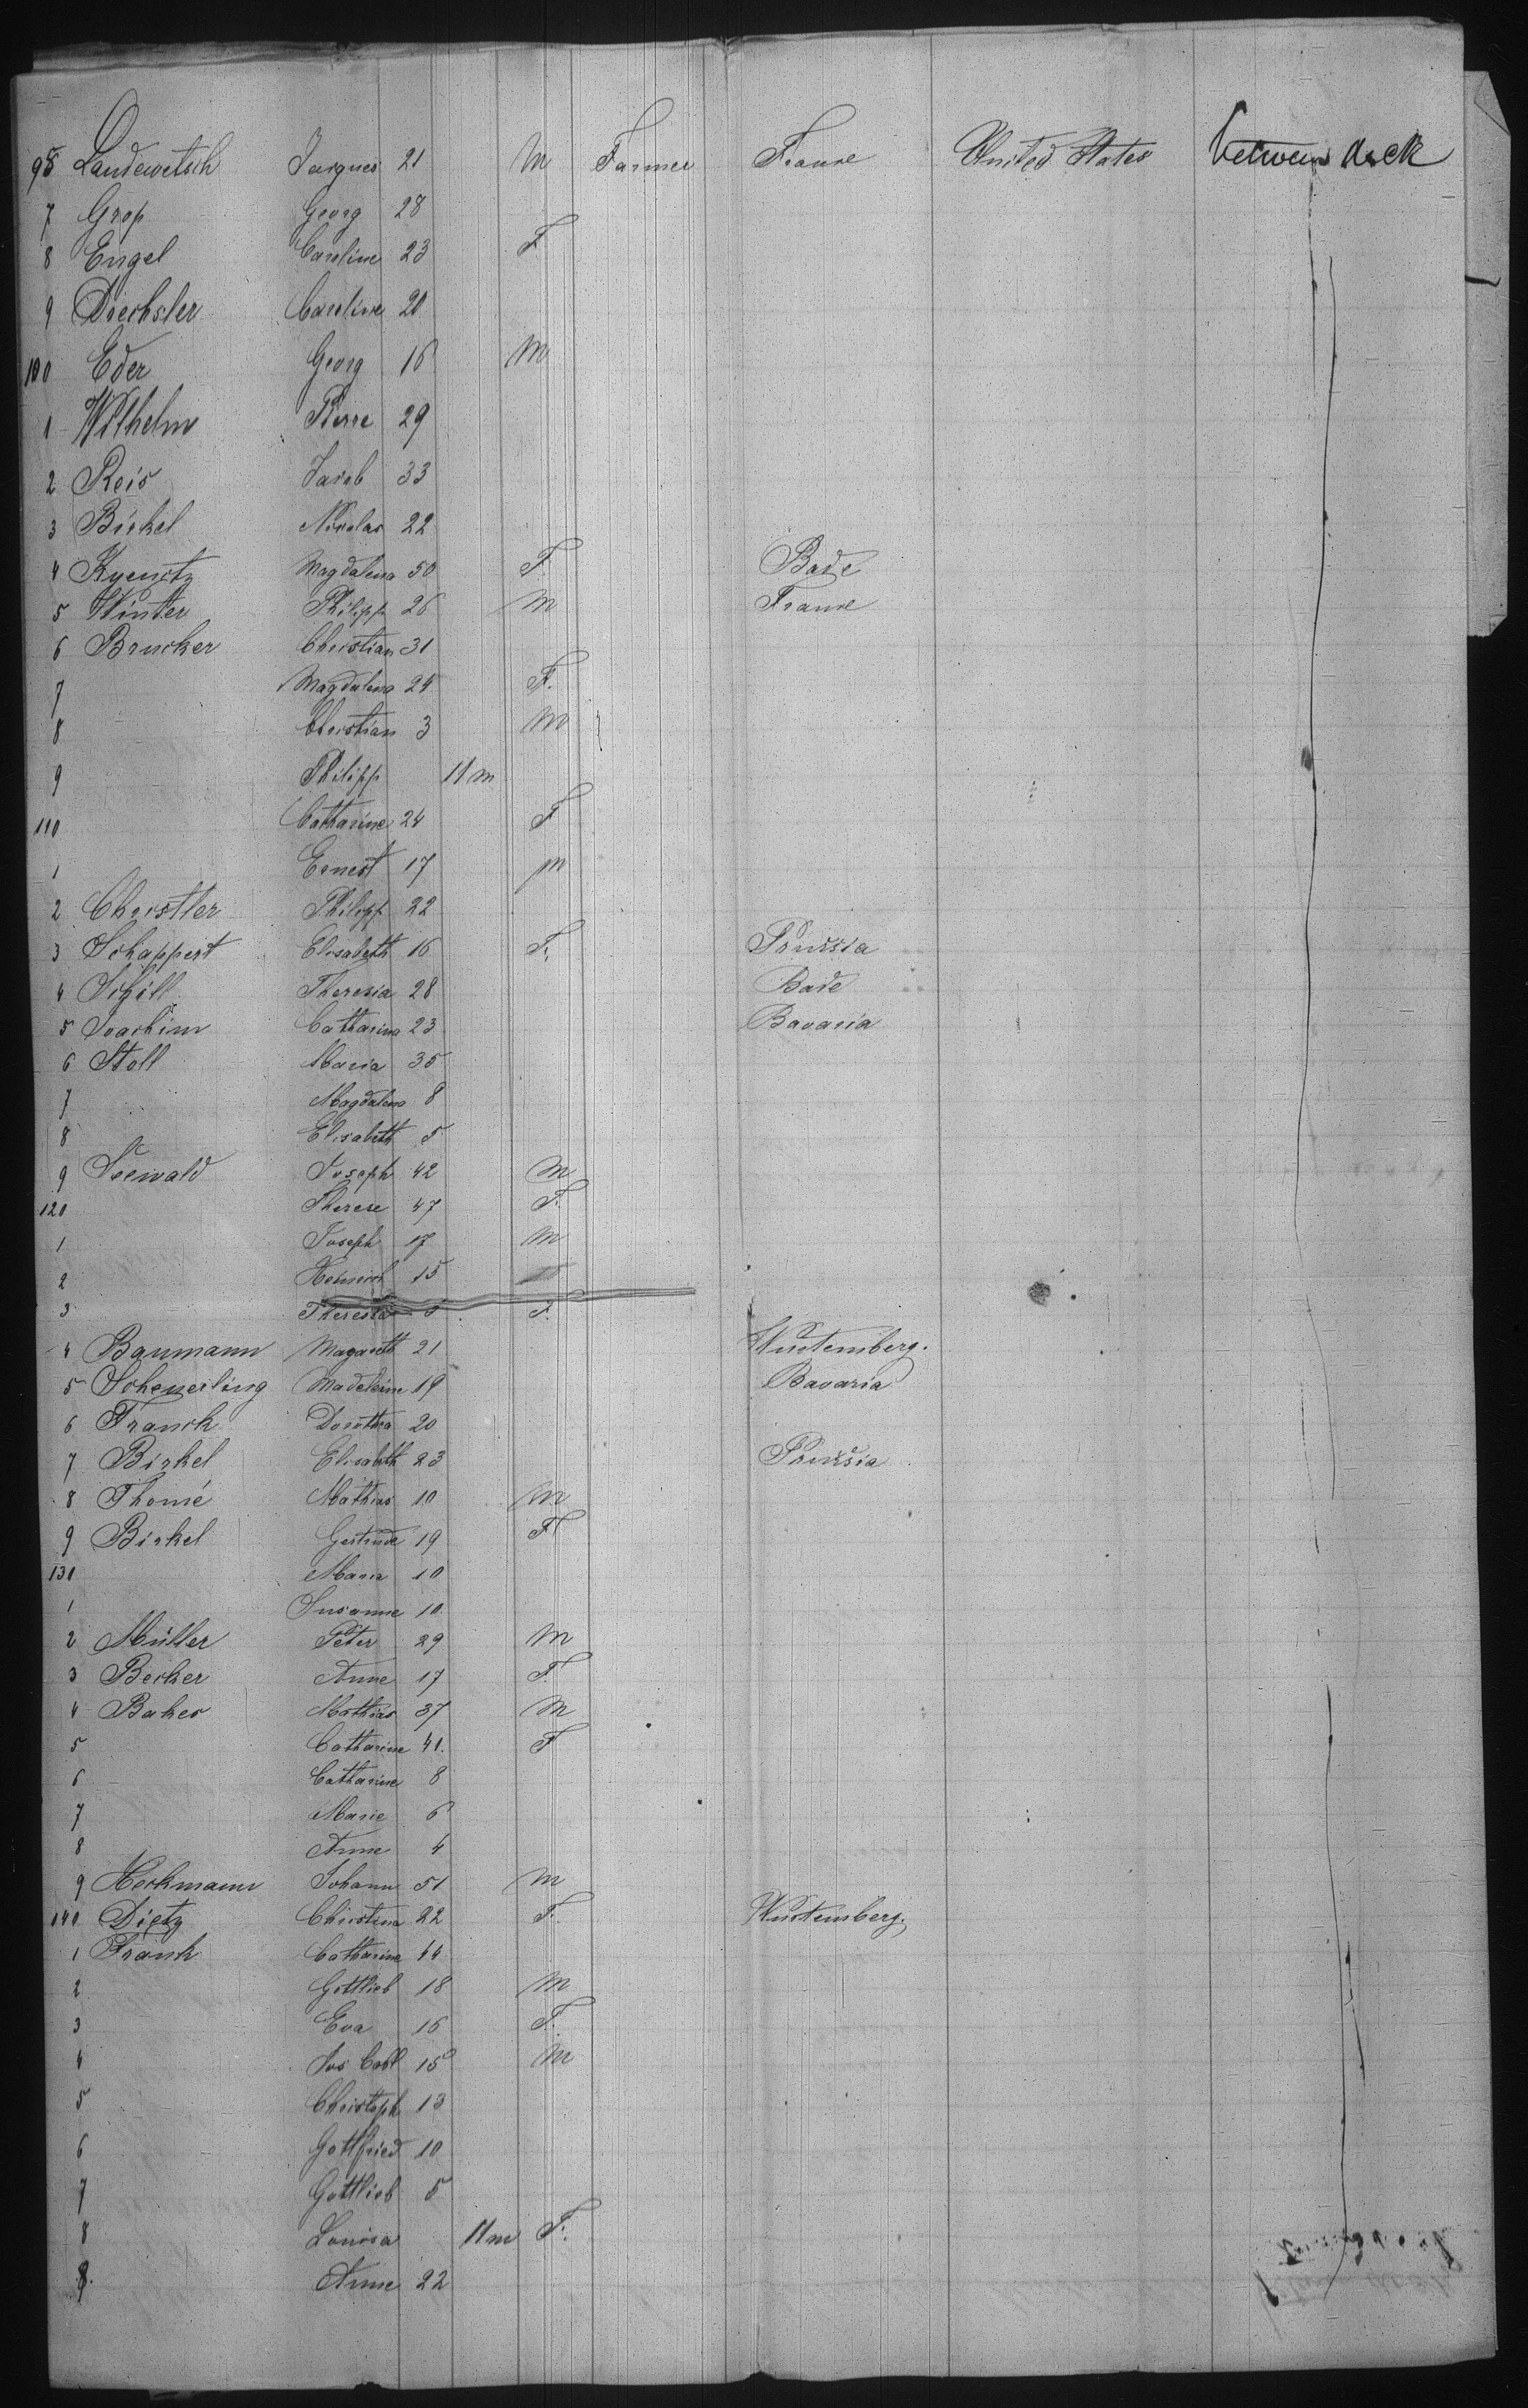 98 Landewetsch Jacques 21 M Farmer France United States between deck
7 Grop Georg 28
8 Engel Caroline 23 F
9 Drechsler Caroline 20
100 Eder Georg 16 M
1 Wilhelm Pierre 29
2 Reis Jacob 33
3 Birkel Nicolas 22
4 Magdalena 50 F Bade
5 Winter Philipp 26 M France
6 Brucker Christian 31
7 Magdalena 24 F.
8 Christian 3 M
9 Philipp 11 m
110 Catharine 24 F
1 Ernest 17 M
2 Christler Philipp 22
3 Schappert Elisabeth 16 F. Prussia
4 Theresia 28 Bade
5 Joachim Catharina 23 Bavaria
6 Stoll Maria 35
7 Magdalena 8
8 Elisabeth 5
9 Seewald Joseph 42 M
120 Therese 47 F.
1 Joseph 17 M
2 Heinrich 15
3 Theresia F.
4 Baumann Magareth 21 Wurtemberg.
5 Scheuerling Madeleine 19 Bavaria
6 Franck Dorothea 20
7 Birkel Elisabeth 23 Prussia
8 Thomé Mathias 10 M
9 Birkel Gertrude 19 F
130 Maria 10
1 Susanne 10
2 Müller Peter 29 M
3 Becker Anne 17 F.
4 Baker Mathias 37 M
5 Catharine 41. F
6 Catharine 8
7 Marie 6
8 Anne 4
9 Heckmann Johann 51 M
140 Dietz Christina 22 F. Wurtemberg.
1 Frank Catharina 44
2 Gottlieb 18 M
3 Eva 16 F.
4 Jos Carl 15 M
5 Christoph 13
6 Gottfried 10
7 Gottlieb 5
8 Louisa 11 m F.
9. Anne 22